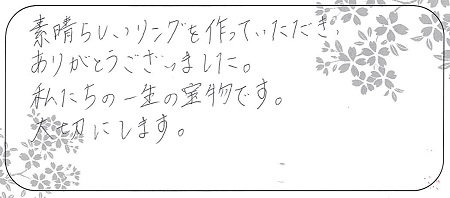 素晴らしいリングを作っていただき、
ありがとうございました。
私たちの一生の宝物です。
大切にします。